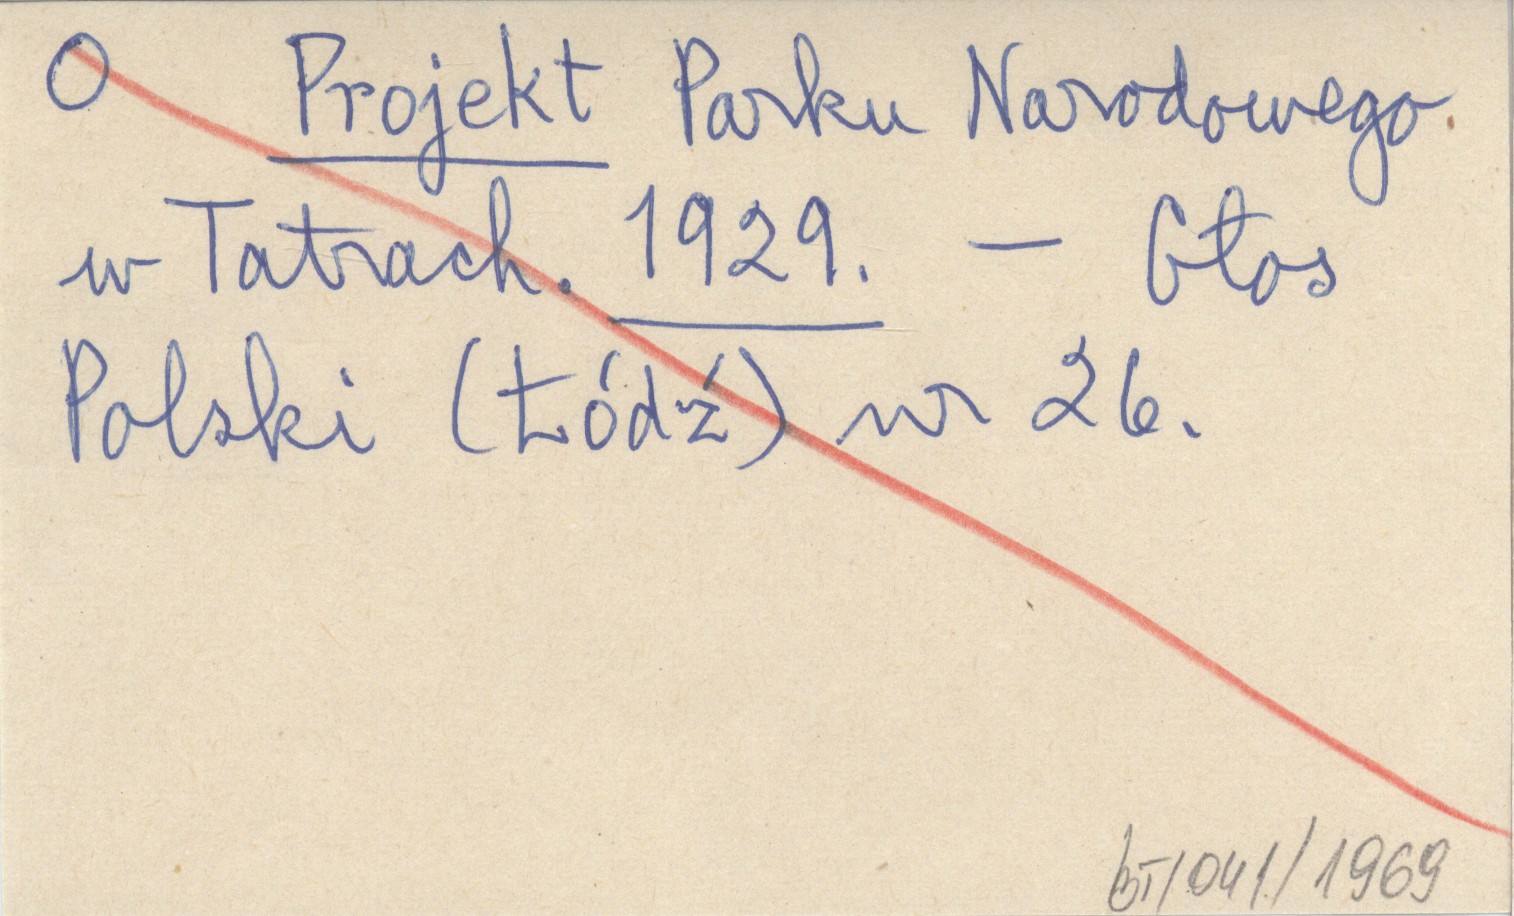 O Projekt Parku Narodowego
w Tatrach. 1929. — Głos
Polski (Łódź) nr 26.
BT/041/1969